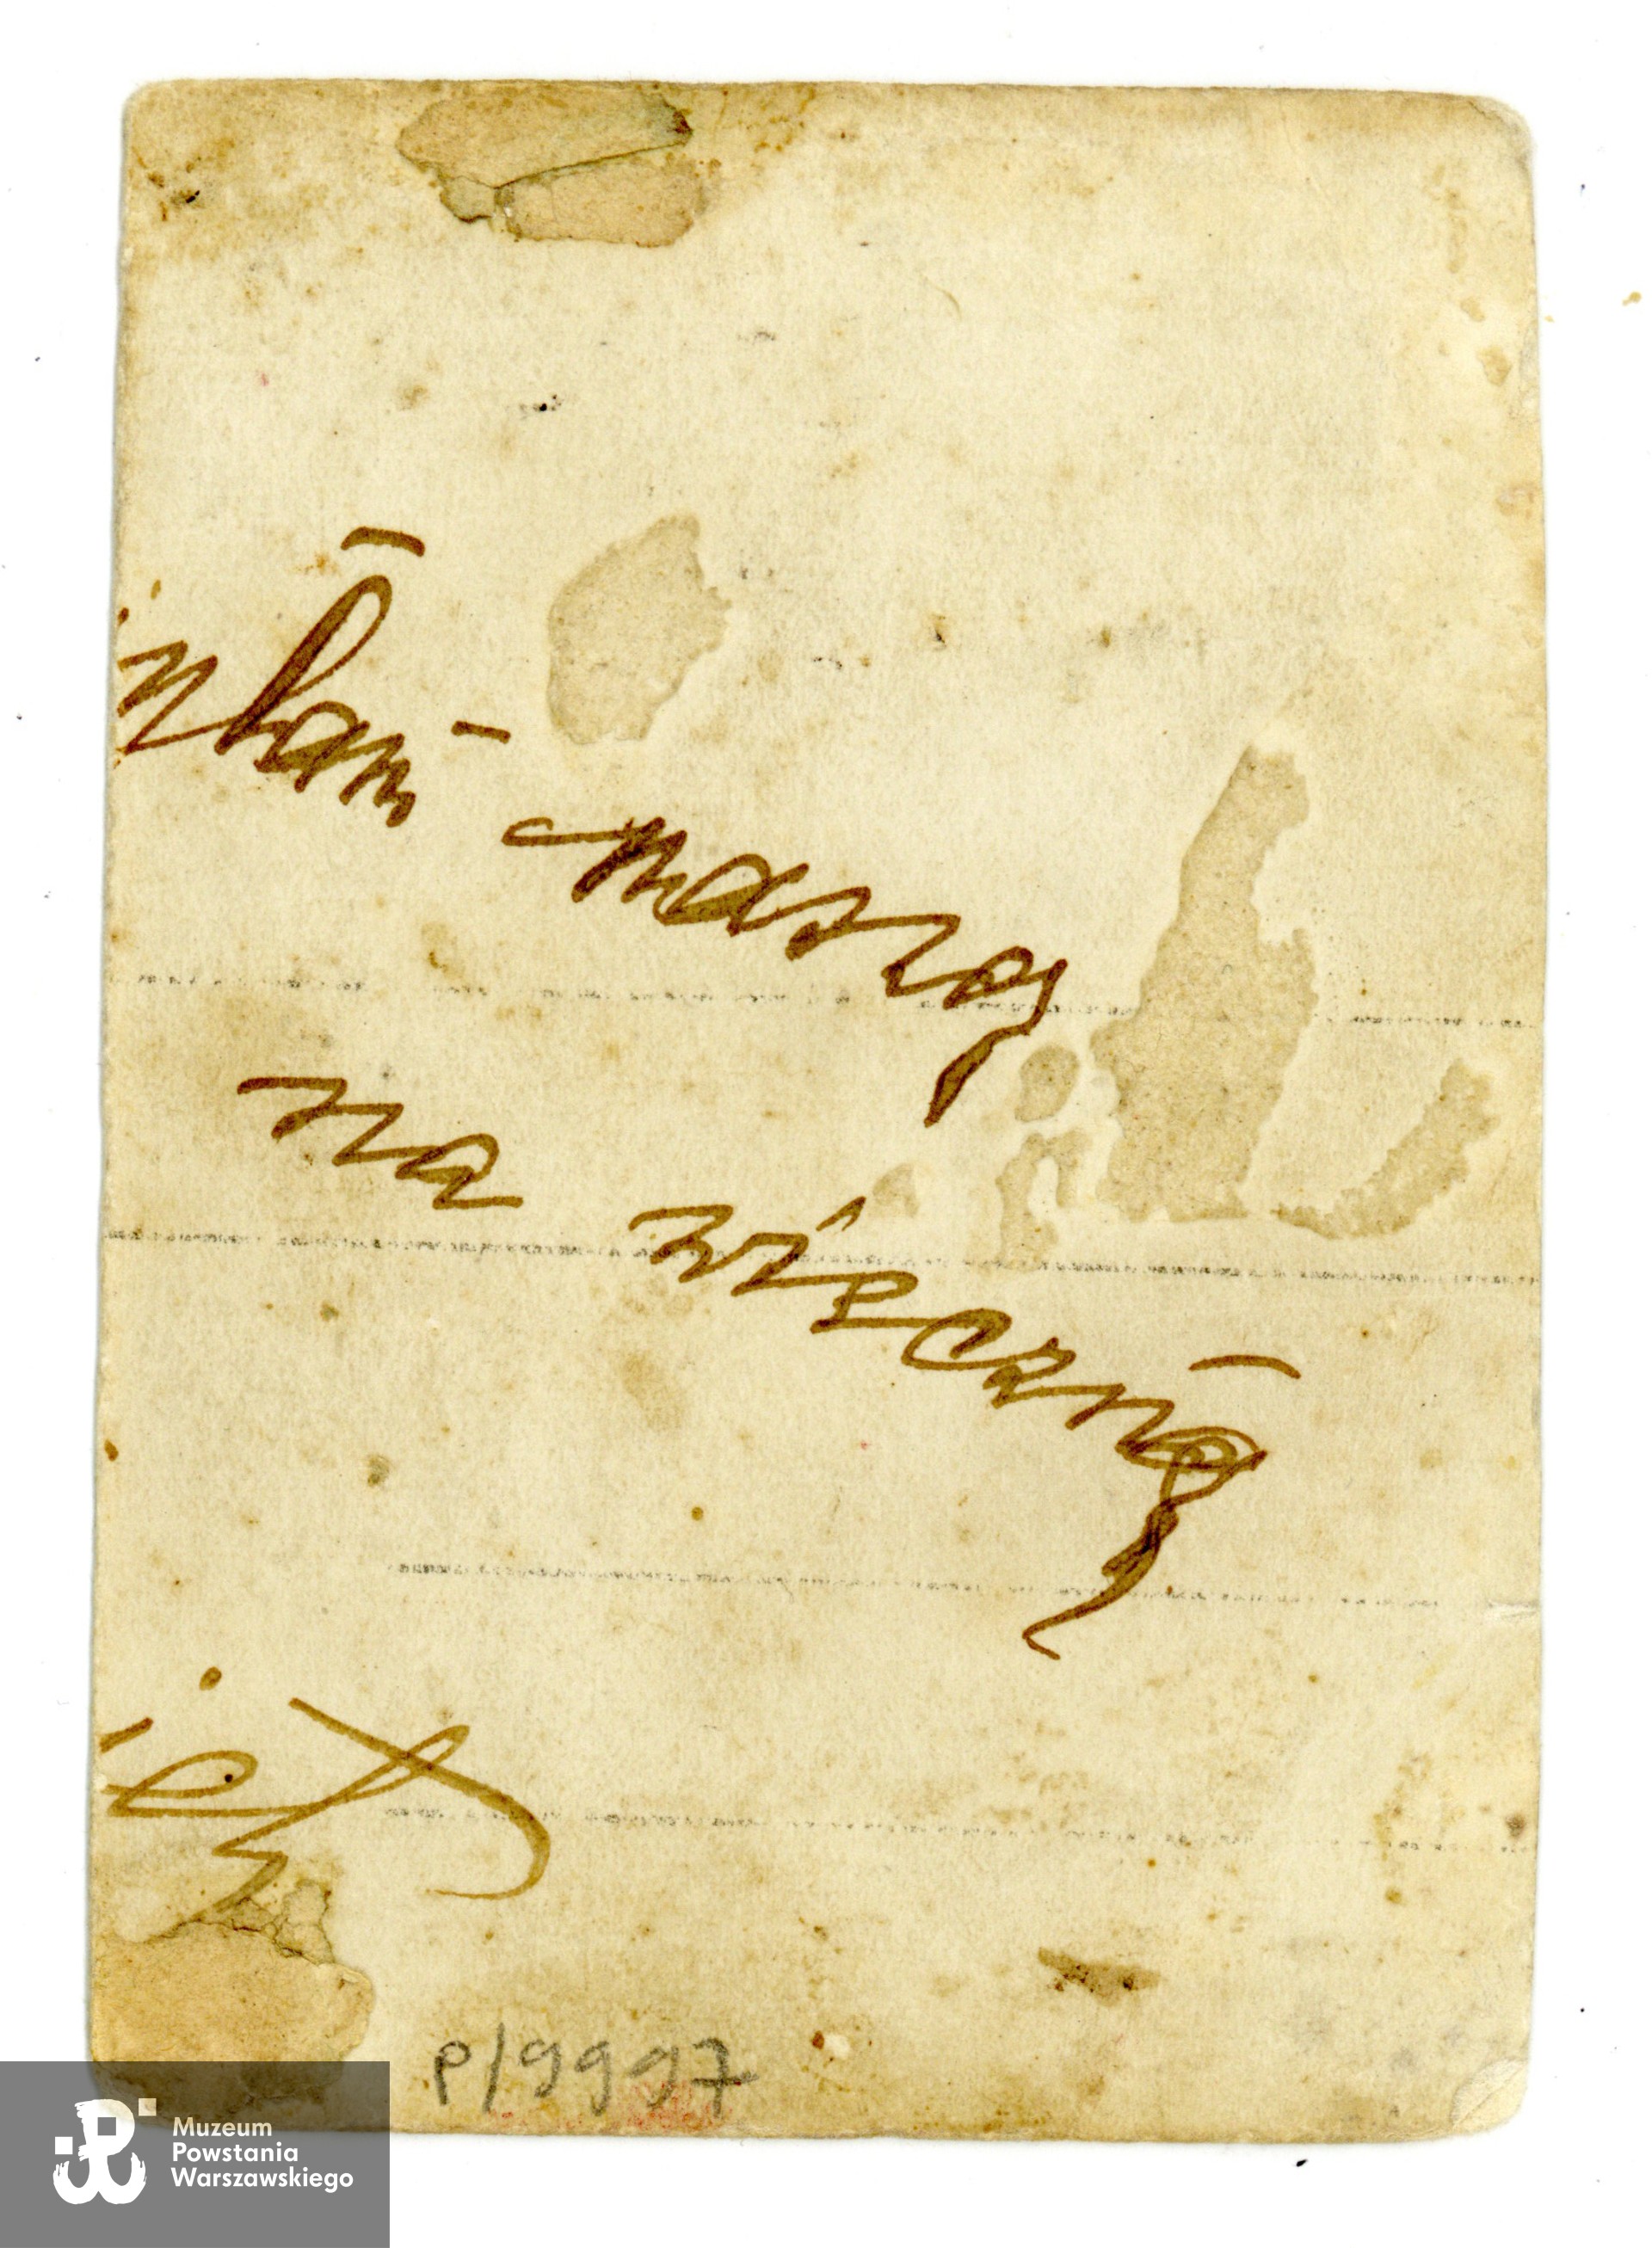 naszą
na wieczną
ięć
P/9997
Muzeum
Powstania
Warszawskiego